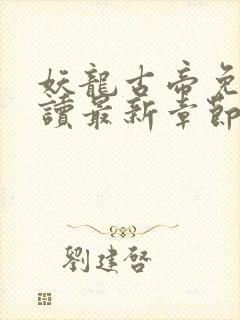 妖龍古帝免
讀最新章節
劉建啓